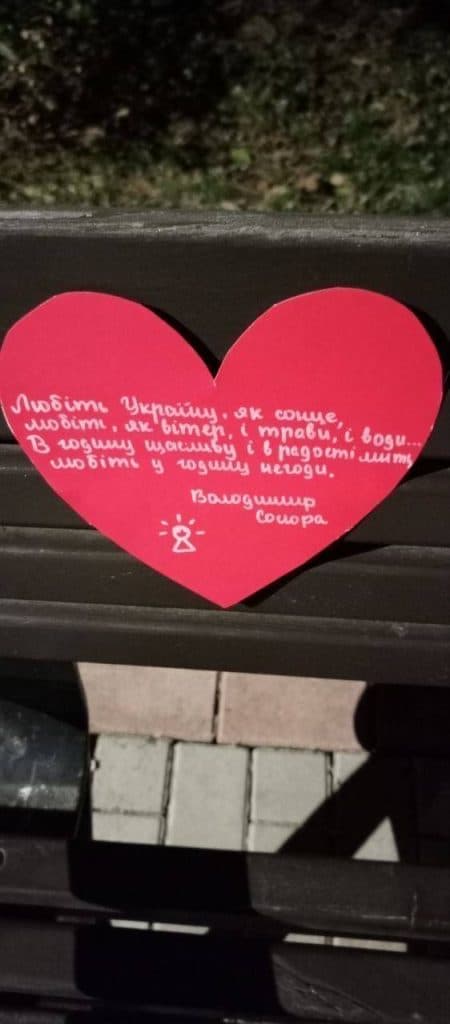 Любіть Україну, як сонце,
любіть, як вітер, і трави, і води...
В годину щасливу і в радості мить,
любіть у годину негоди.
Володимир
Сосюра